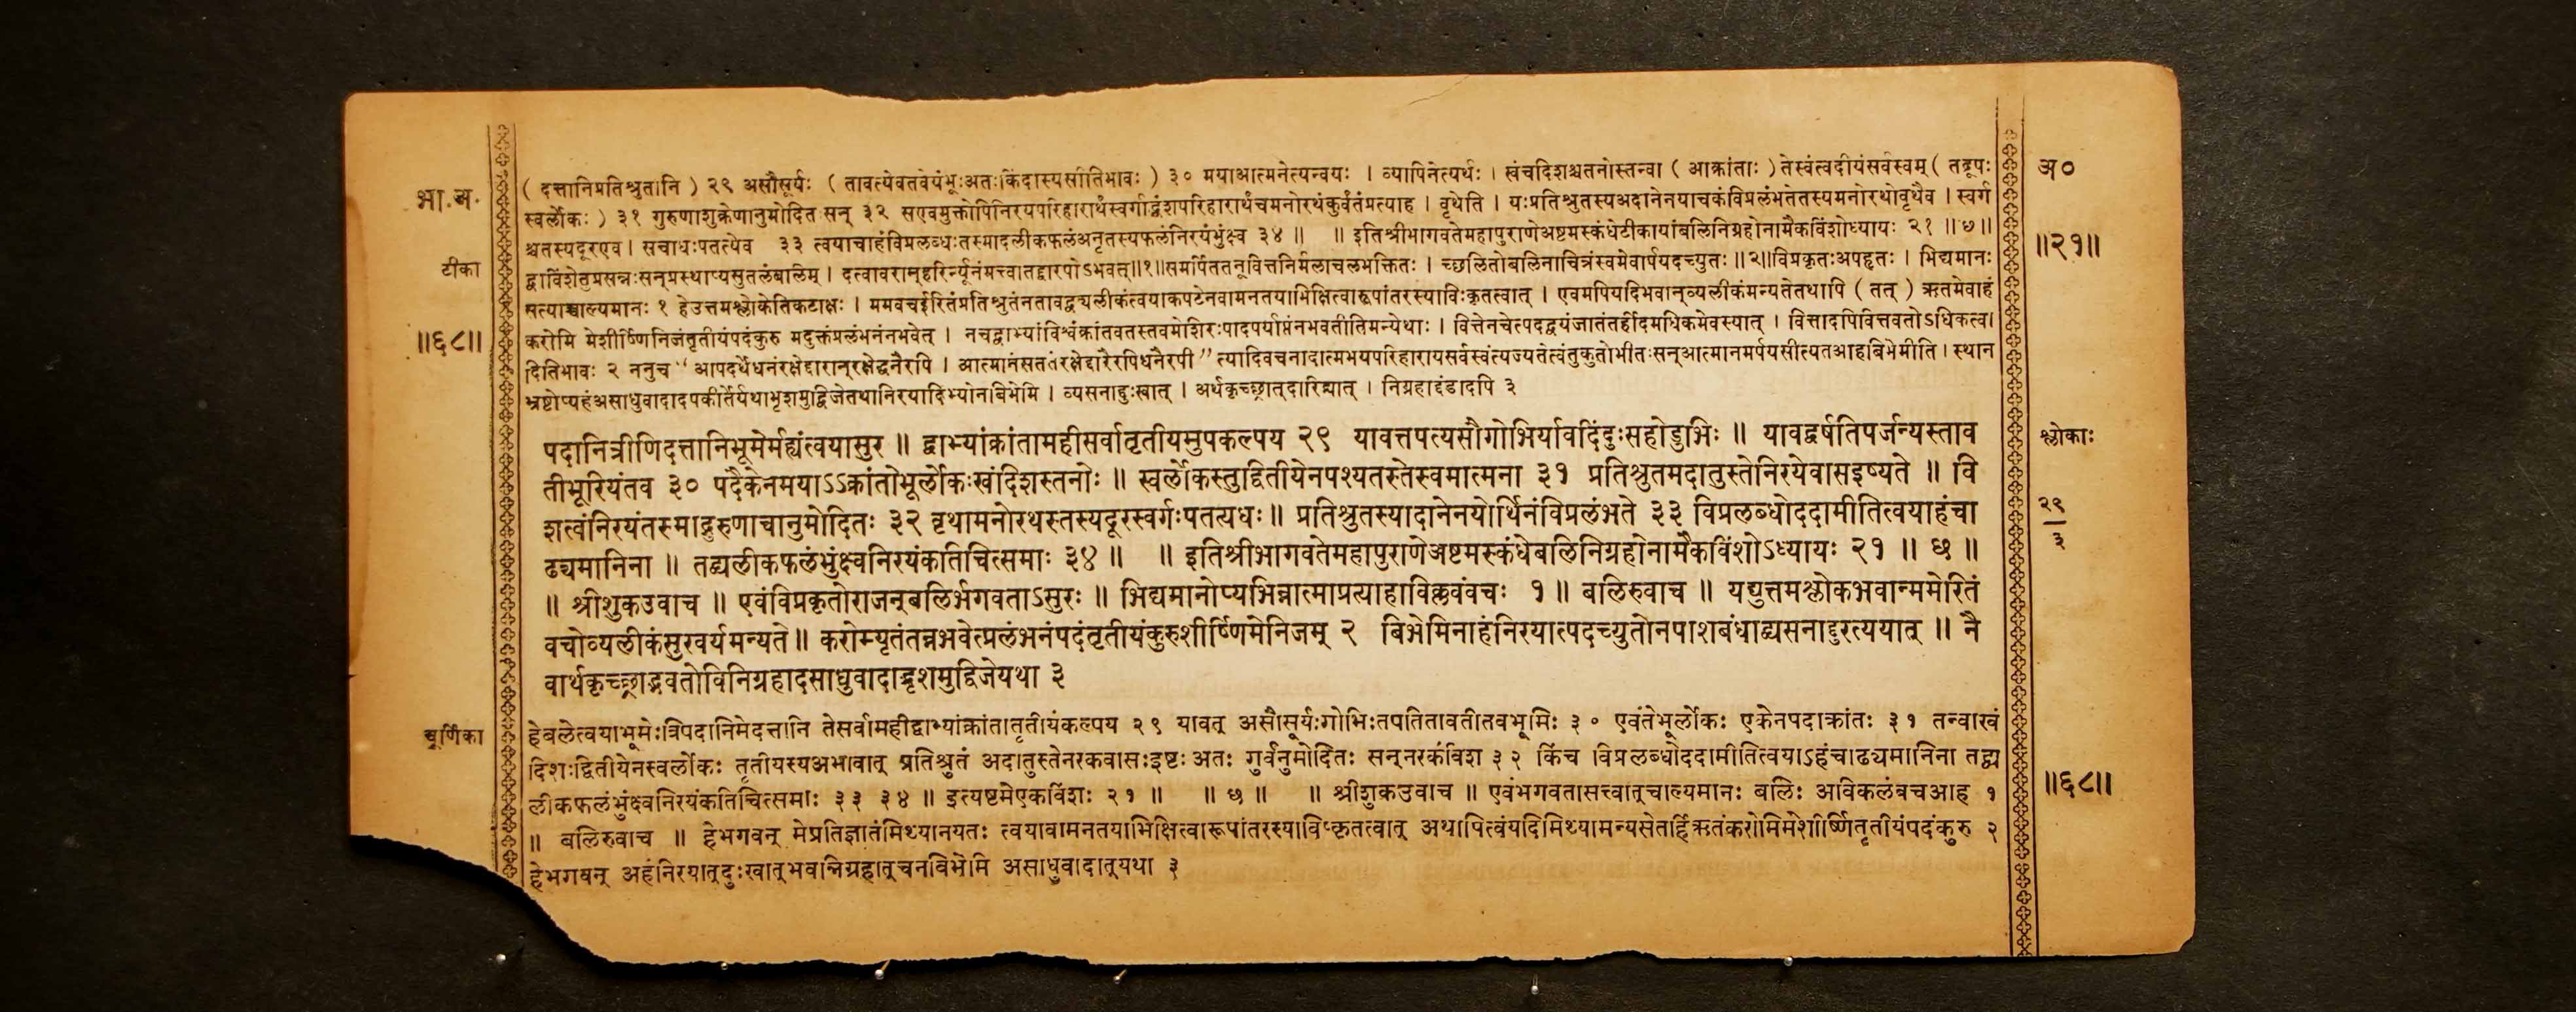 भा.अ.
टीका
॥६८॥
चूर्णिका
(दत्तानिप्रतिश्रुतानि) २९ असौसूर्यः (तावत्येवतवेयंभूःअतःकिंदास्यसीतिभावः) ३० मयाआत्मनेत्यन्वयः । व्यापिनेत्यर्थः । खंचदिशश्चतनोस्तन्वा (आक्रांताः) तेस्वंत्वदीयंसर्वस्वम् (तद्रूपः
स्वर्लोकः) ३१ गुरुणाशुक्रेणानुमोदित सन् ३२ सएवमुक्तोपिनिरयपरिहारार्थंस्वर्गाद्भ्रंशपरिहारार्थंचमनोरथंकुर्वंतंप्रत्याह । वृथेति । यःप्रतिश्रुतस्यअदानेनयाचकंविप्रलंभतेतस्यमनोरथोवृथैव । स्वर्ग
श्चतस्यदूरएव । सचाधःपतत्येव ३३ त्वयाचाहंविप्रलब्धःतस्मादलीकफलंअनृतस्यफलंनिरयंभुंक्ष्व ३४ ॥ ॥ इतिश्रीभागवतेमहापुराणेअष्टमस्कंधेटीकायांबलिनिग्रहोनामैकविंशोध्यायः २१ ॥ ७ ॥
द्वाविंशेतुप्रसन्नःसन्प्रस्थाप्यसुतलंबलिम् । दत्वावरान्हरिर्न्यूनंमत्त्वातद्द्वारपोऽभवत् ॥१॥ समर्पिततनूवित्तनिर्मलाचलभक्तितः । च्छलितोबलिनाचित्रंस्वमेवार्पयदच्युतः ॥२॥ विप्रकृतःअपहृतः । भिद्यमानः
सत्याच्चाल्यमानः १ हेउत्तमश्लोकेतिकटाक्षः । ममवचईरितंप्रतिश्रुतंनतावद्व्यलीकंत्वयाकपटेनवामनतयाभिक्षित्वारूपांतरस्याविःकृतत्वात् । एवमपियदिभवान्व्यलीकंमन्यतेतथापि (तत्) ऋतमेवाहं
करोमि मेशीर्ष्णिनिजंतृतीयंपदंकुरु मदुक्तंप्रलंभनंनभवेत् । नचद्वाभ्यांविश्वंक्रांतवतस्तवमेशिरःपादपर्याप्तंनभवतीतिमन्येथाः । वित्तेनचेत्पदद्वयंजातंतर्हीदमधिकमेवस्यात् । वित्तादपिवित्तवतोऽधिकत्वा
दितिभावः २ ननुच “आपदर्थेधनंरक्षेद्दारान्रक्षेद्धनैरपि । आत्मानंसततंरक्षेद्दारैरपिधनैरपी” त्यादिवचनादात्मभयपरिहारायसर्वस्वंत्यज्यतेत्वंतुकुतोभीतःसन्आत्मानमर्पयसीत्यतआहबिभेमीति । स्थान
भ्रष्टोप्यहंअसाधुवादादपकीर्तेर्यथाभृशमुद्विजेतथानिरयादिभ्योनबिभेमि । व्यसनाद्दुःखात् । अर्थकृच्छ्रात्दारिद्र्यात् । निग्रहाद्दंडादपि ३
पदानित्रीणिदत्तानिभूमेर्मह्यंत्वयासुर ॥ द्वाभ्यांक्रांतामहीसर्वातृतीयमुपकल्पय २९ यावत्तपत्यसौगोभिर्यावदिंदुःसहोडुभिः ॥ यावद्वर्षतिपर्जन्यस्ताव
तीभूरियंतव ३० पदैकेनमयाऽऽक्रांतोभूर्लोकःखंदिशस्तनोः ॥ स्वर्लोकस्तुद्वितीयेनपश्यतस्तेस्वमात्मना ३१ प्रतिश्रुतमदातुस्तेनिरयेवासइष्यते ॥ वि
शत्वंनिरयंतस्माद्गुरुणाचानुमोदितः ३२ वृथामनोरथस्तस्यदूरस्वर्गःपतत्यधः ॥ प्रतिश्रुतस्यादानेनयोर्थिनंविप्रलंभते ३३ विप्रलब्धोददामीतित्वयाहंचा
ढ्यमानिना ॥ तद्व्यलीकफलंभुंक्ष्वनिरयंकतिचित्समाः ३४ ॥ ॥ इतिश्रीभागवतेमहापुराणेअष्टमस्कंधेबलिनिग्रहोनामैकविंशोऽध्यायः २१ ॥ छ ॥
॥ श्रीशुकउवाच ॥ एवंविप्रकृतोराजन्बलिर्भगवताऽसुरः ॥ भिद्यमानोप्यभिन्नात्माप्रत्याहाविक्लवंवचः १ ॥ बलिरुवाच ॥ यद्युत्तमश्लोकभवान्ममेरितं
वचोव्यलीकंसुरवर्यमन्यते ॥ करोम्यृतंतन्नभवेत्प्रलंभनंपदंतृतीयंकुरुशीर्ष्णिमेनिजम् २ बिभेमिनाहंनिरयात्पदच्युतोनपाशबंधाद्व्यसनाद्दुरत्ययात् ॥ नै
वार्थकृच्छ्राद्भवतोविनिग्रहादसाधुवादाद्भृशमुद्विजेयथा ३
हेबलेत्वयाभूमेःत्रिपदानिमेदत्तानि तेसर्वामहीद्वाभ्यांक्रांतातृतीयंकल्पय २९ यावत् असौसूर्यःगोभिःतपतितावतीतवभूमिः ३० एवंतेभूर्लोकः एकेनपदाक्रांतः ३१ तन्वाखं
दिशःद्वितीयेनस्वर्लोकः तृतीयस्यअभावात् प्रतिश्रुतं अदातुस्तेनरकवासःइष्टः अतः गुर्वनुमोदितः सन्नरकंविश ३२ किंच विप्रलब्धोददामीतित्वयाऽहंचाढ्यमानिना तद्व्य
लीकफलंभुंक्ष्वनिरयंकतिचित्समाः ३३ ३४ ॥ इत्यष्टमेएकविंशः २१ ॥ ॥ छ ॥ ॥ श्रीशुकउवाच ॥ एवंभगवतासत्त्वात्चाल्यमानः बलिः अविकलंवचआह १
॥ बलिरुवाच ॥ हेभगवन् मेप्रतिज्ञातंमिथ्यानयतः त्वयावामनतयाभिक्षित्वारूपांतरस्याविष्कृतत्वात् अथापित्वंयदिमिथ्यामन्यसेतर्हिऋतंकरोमिमेशीर्ष्णितृतीयंपदंकुरु २
हेभगवन् अहंनिरयात्दुःखात्भवन्निग्रहात्चनबिभेमि असाधुवादात्यथा ३
अ०
॥२१॥
श्लोकाः
२९
३
॥६८॥